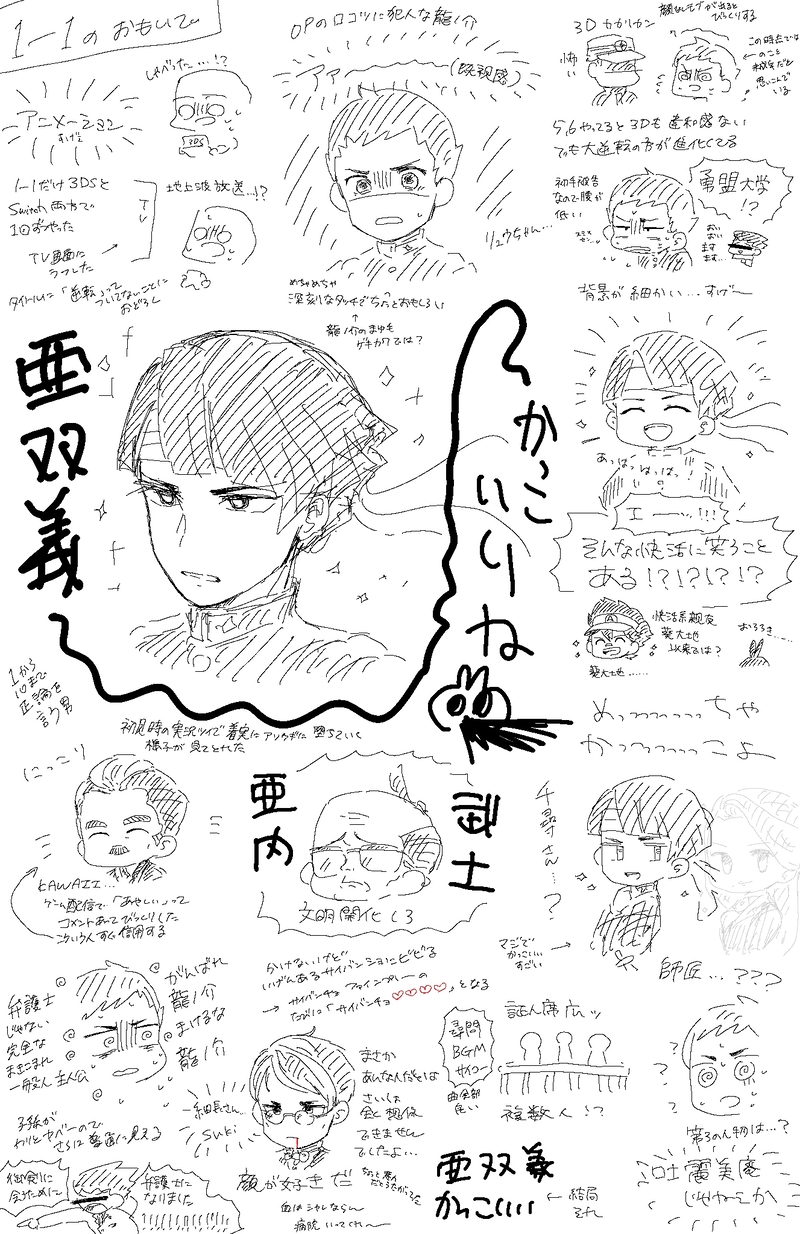 1-1の おもいで
しゃべった…!?
アニメーション
すげえ
3DS
1-1だけ 3DSと
Switch 両方で
1回ずつやった
TV
TV画面に
うつした
地上波放送…!?
タイトルに「逆転」って
ついてないことに
おどろく
OPのロコツに犯人な龍ノ介
アァ
(既視感)
リュウちゃん…
めちゃめちゃ
深刻なタッチでちょっとおもしろい
↑
龍ノ介のまゆも
ゲキカワでは?
3D カカリカン
怖い
びっくりする
この時点では
5,6やってると 3Dも 違和感ない
でも大逆転の方が進化してる
初手被告
なので腰が
低い
勇盟大学
!?
おい
おい
ます
ます…
背景が細かい…すげ〜
亜双義
かっこいいりね
あっはっはっは!
エー…!!!
そんな快活に笑うこと
ある!?!?!?!?
快活系親友
葵大地
以来では?
葵大地……
おろろき…
めっ……ちゃ
かっ……こよ
1から
10まで
正論を
言う男
初見時の実況ツイで着実にアソウギに堕ちていく
様子が見てとれた
にっこり
KAWAII…
ゲーム配信で「あやしい」って
コメントあってびっくりした
亜内
武士
文明開化しろ
千尋さん…?
マジで
かっこいい
すごい
師匠…???
弁護士
じゃない
完全な
まきこまれ
一般人主人公
がんばれ
龍ノ介
まけるな
龍ノ介
かけないけど
いげんあるサイバンチョにビビる
→ サイバンチョ ファインプレーの
たびに「サイバンチョ♡♡♡♡」となる
尋問
BGM
サイコー
曲全部
良い
証人席広ッ
複数人!?
細長さん…
suki
まさか
あんなんだとは
さいしょ
全く想像
できません
でしたよ…
顔が好きだ
血はシャレならん
病院いってくれ〜
子孫が
わりとヤベーので
さらに普通に見える
御剣に
会うために
弁護士に
なりました
!!!!!!!!!!
亜双義
かっこいい
← 結局
それ
第3の人物は…?
吐麗美庵
じゃねーか